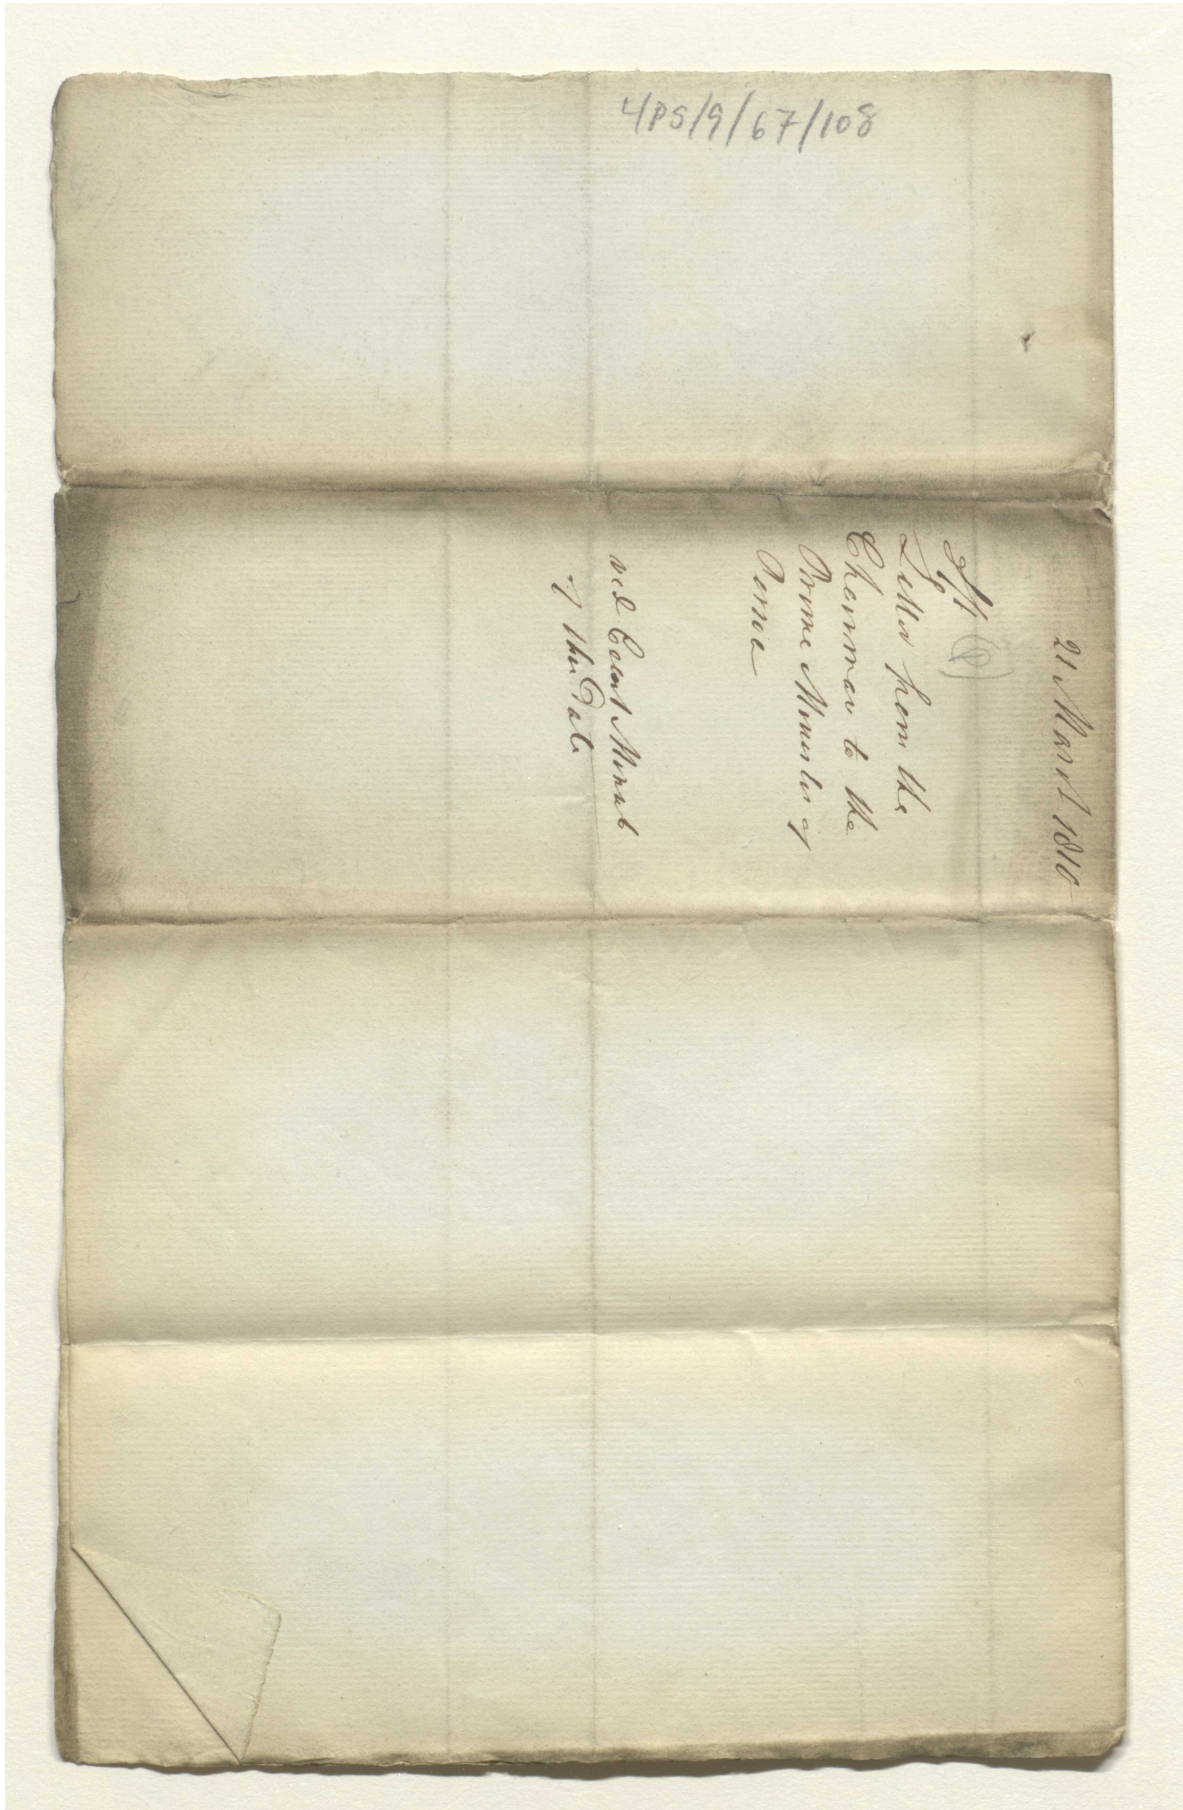 4PS/9/67/108
21 March 1810
Dft
Letter from the
Chairman to the
Prime Minister of
Persia
vid Court Minut
of this Date